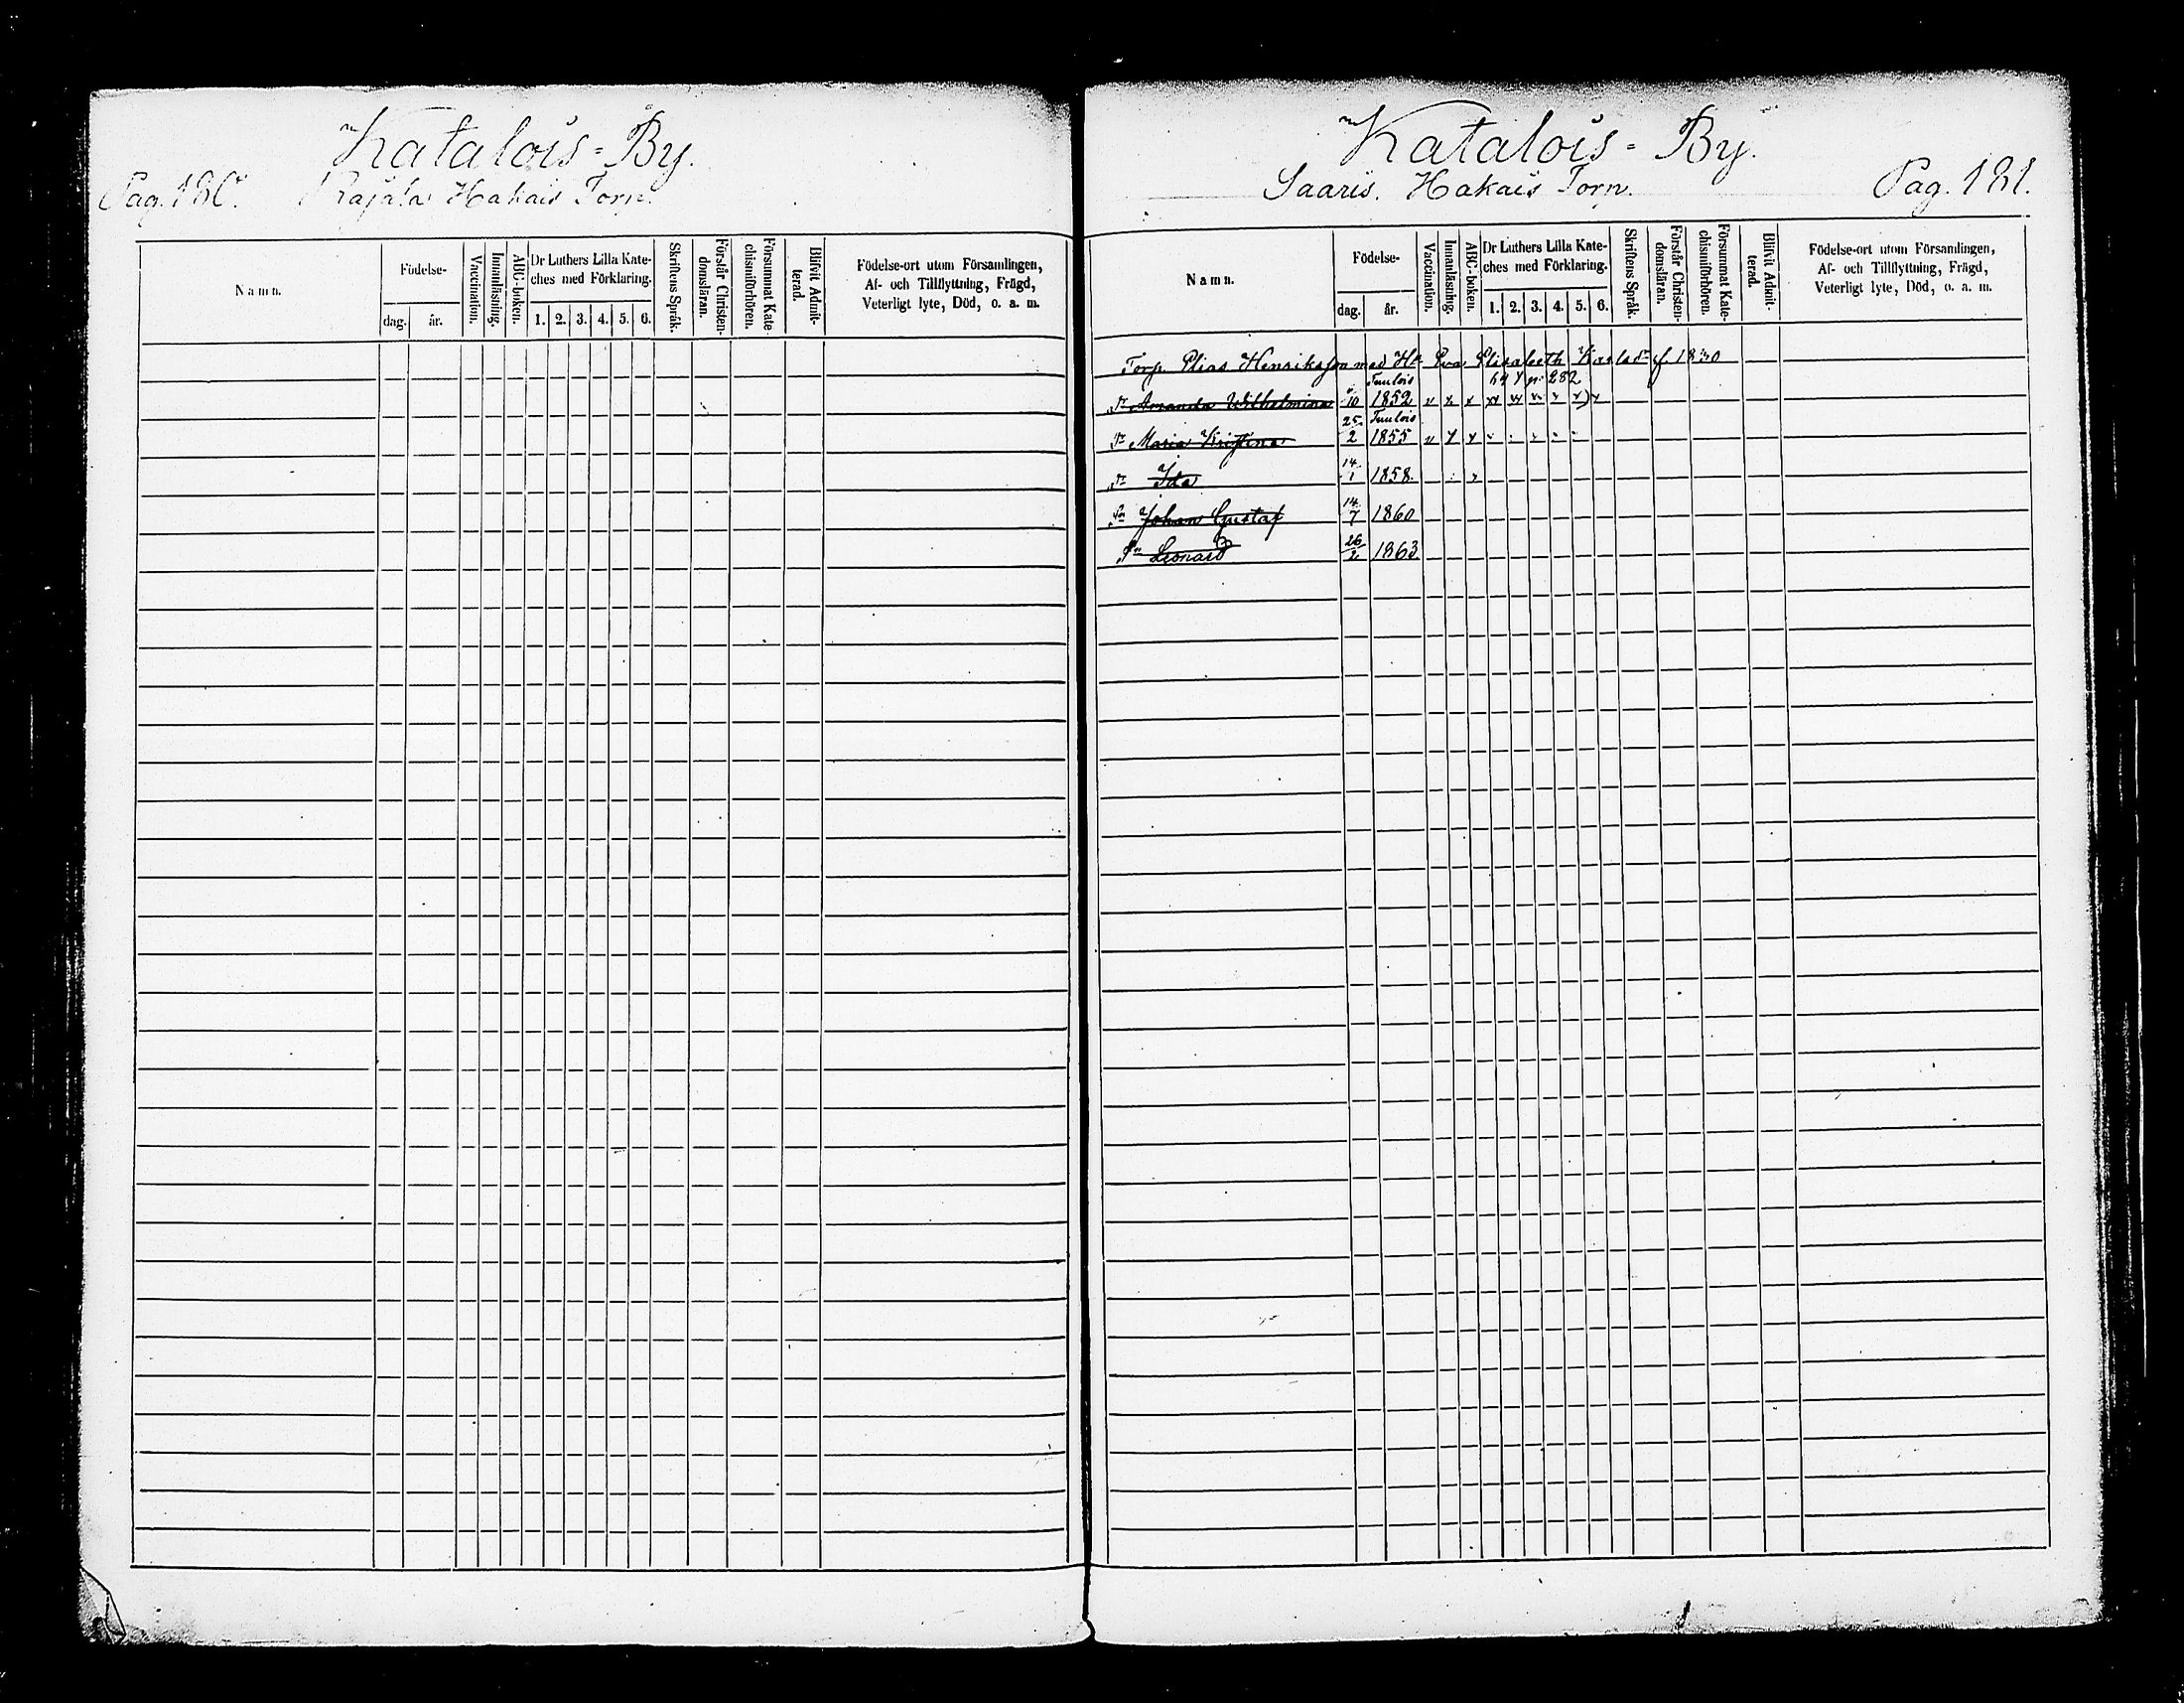 Katalois-By.
Pag. 180. Rajala Hakais Torp.
Namn.
Födelse-
dag. år.
Vaccination.
Innanläsning.
ABC-boken.
Dr Luthers Lilla Kate-
ches med Förklaring.
1. 2. 3. 4. 5. 6.
Skriftens Språk.
Förstår Christen-
domsläran.
Försummat Kate-
chismiförhören.
Blifvit Admit-
terad.
Födelse-ort utom Församlingen,
Af- och Tillflyttning, Frägd,
Veterligt lyte, Död, o. a. m.
Katalois-By.
Saaris. Hakais Torp. Pag. 181.
Namn.
Födelse-
dag. år.
Vaccination.
Innanläsning.
ABC-boken.
Dr Luthers Lilla Kate-
ches med Förklaring.
1. 2. 3. 4. 5. 6.
Skriftens Språk.
Förstår Christen-
domsläran.
Försummat Kate-
chismiförhören.
Blifvit Admit-
terad.
Födelse-ort utom Församlingen,
Af- och Tillflyttning, Frägd,
Veterligt lyte, Död, o. a. m.
Torp. Elias Henriksson med H. Eva Elisabeth Karlsdr f. 1830
Tuulois 282
Dr Amanda Wilhelmina 10 1852
Tuulois
Dr Maria Kristina 25/2 1855
Dr Ida 14/1 1858
Sn Johan Gustaf 14/7 1860
Sn Leonard 26/2 1863